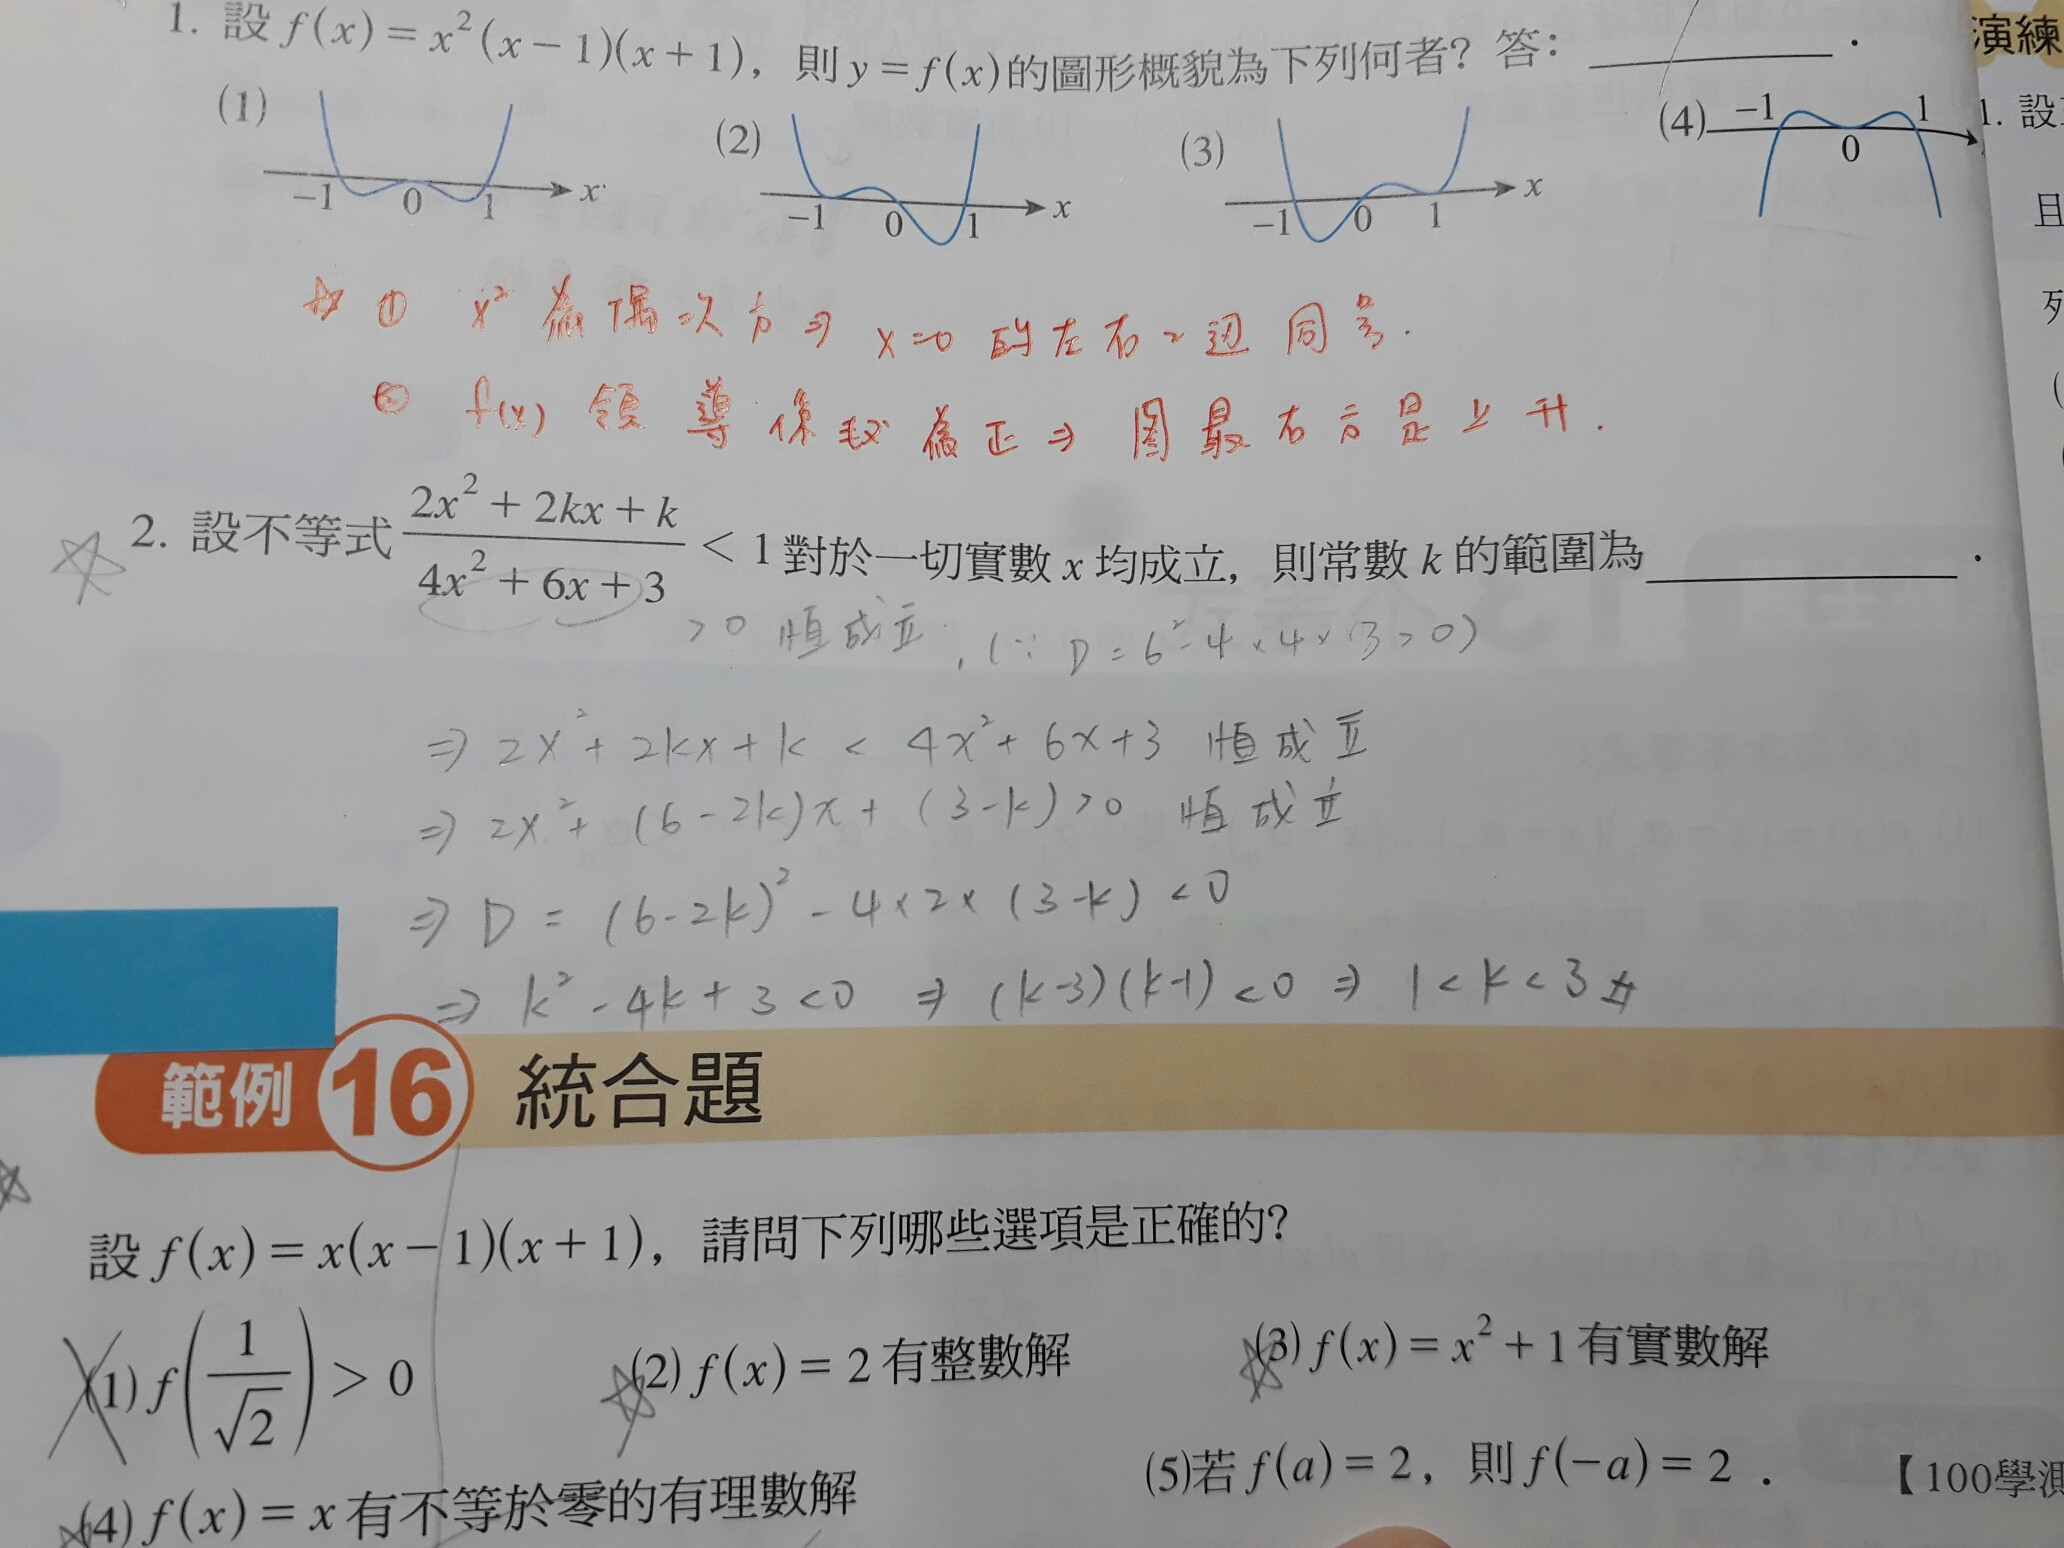 1. 設 f(x) = x²(x − 1)(x + 1)，則 y = f(x)的圖形概貌為下列何者？答： ________ .
演練
(1) −1 0 1 x
(2) −1 0 1 x
(3) −1 0 1 x
(4) −1 0 1
1. 設
且
① x² 為偶次方 ⇒ x=0 的左右二边同号.
② f(x) 領導係数為正 ⇒ 图最右方是上升.
2. 設不等式 (2x² + 2kx + k)/(4x² + 6x + 3) < 1 對於一切實數 x 均成立，則常數 k 的範圍為 ________ .
>0 恒成立, (∵ D = 6² - 4 × 4 × 3 > 0)
⇒ 2x² + 2kx + k < 4x² + 6x + 3 恒成立
⇒ 2x² + (6 - 2k)x + (3 - k) > 0 恒成立
⇒ D = (6 - 2k)² - 4 × 2 × (3 - k) < 0
⇒ k² - 4k + 3 < 0 ⇒ (k-3)(k-1) < 0 ⇒ 1 < k < 3 #
範例 16 統合題
設 f(x) = x(x − 1)(x + 1)，請問下列哪些選項是正確的？
(1) f(1/√2) > 0
(2) f(x) = 2 有整數解
(3) f(x) = x² + 1 有實數解
(4) f(x) = x 有不等於零的有理數解
(5)若 f(a) = 2，則 f(−a) = 2 .
【100學測